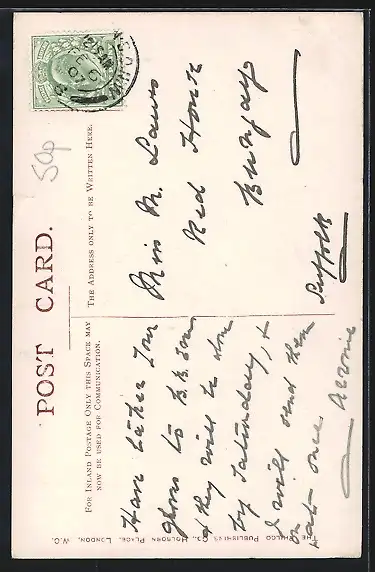 POST CARD.
FOR INLAND POSTAGE ONLY THIS SPACE MAY
NOW BE USED FOR COMMUNICATION.
THE ADDRESS ONLY TO BE WRITTEN HERE.
50p
Have taken your
gloves to B.B.
& they will be done
by Saturday, &
I will send them
on at once.
Miss M. Laws
Red House
Bungay
Suffolk
THE PHILCO PUBLISHING CO., HOLBORN PLACE, LONDON, W.C.